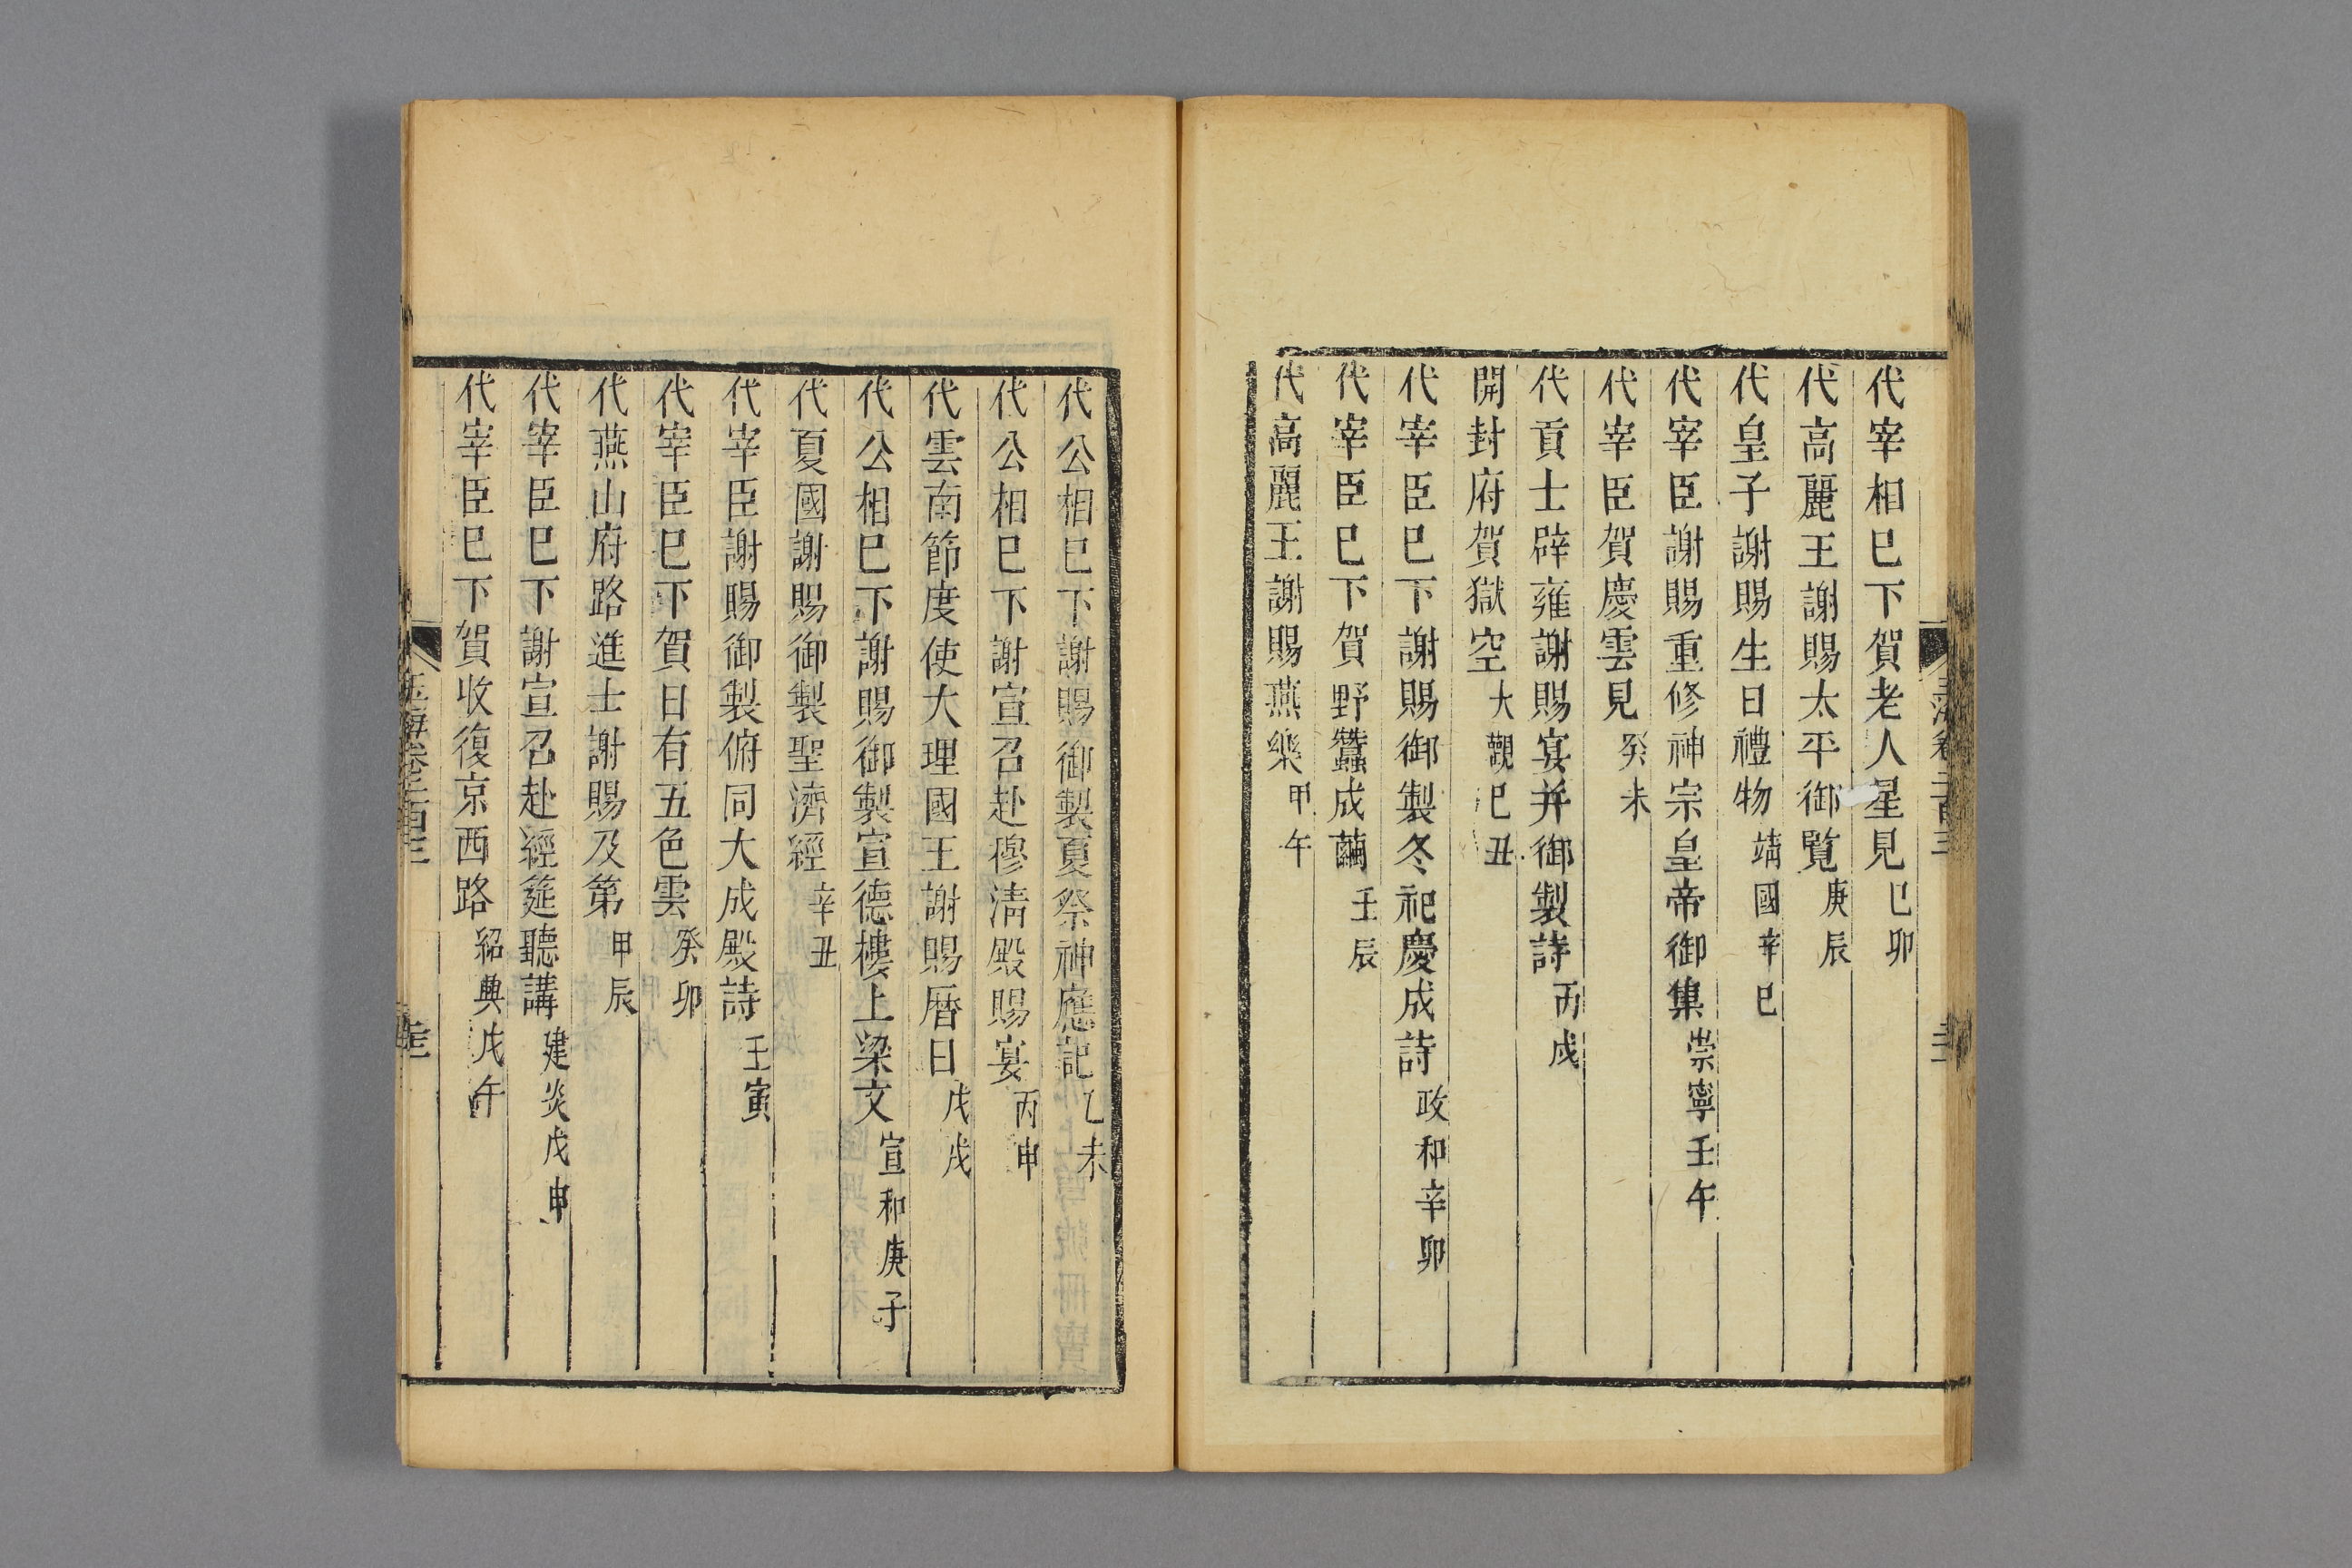 代宰相巳下賀老人星見巳卯
代高麗王謝賜太平御覽庚辰
代皇子謝賜生日禮物靖國辛巳
代宰臣謝賜重修神宗皇帝御集崇寧壬午
代宰臣賀慶雲見癸未
代貢士辟雍謝賜宴并御製詩丙戌
開封府賀獄空大觀巳丑
代宰臣巳下謝賜御製冬祀慶成詩政和辛卯
代宰臣巳下賀野蠶成繭壬辰
代高麗王謝賜燕樂甲午
代公相巳下謝賜御製夏祭神應記乙未
代公相巳下謝宣召赴穆清殿賜宴丙申
代雲南節度使大理國王謝賜曆日戊戌
代公相巳下謝賜御製宣德樓上梁文宣和庚子
代夏國謝賜御製聖濟經辛丑
代宰臣謝賜御製俯同大成殿詩壬寅
代宰臣巳下賀日有五色雲癸卯
代燕山府路進士謝賜及第甲辰
代宰臣巳下謝宣召赴經筵聽講建炎戊申
代宰臣巳下賀收復京西路紹興戊午
玉海卷二百三